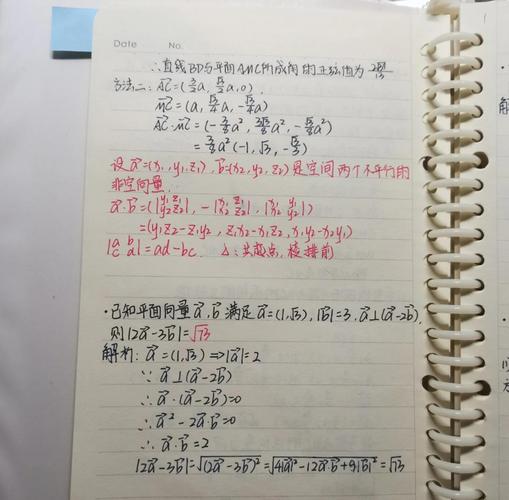 Date No.
∴直线BD与平面AMC所成角的正弦值为
方法二: AC=(3/2a, √3/2a, 0).
MC=(a, √3/4a, -√3/4a)
AC·MC=(-3/8a², 3√3/8a², -√3/8a²)
=3/8a²(-1, √3, -√3/3)
设a=(x₁,y₁,z₁), b=(x₂,y₂,z₂)是空间两个不平行的
非空向量.
a·b=(|y₁ z₁ y₂ z₂|, -|x₁ z₁ x₂ z₂|, |x₁ y₁ x₂ y₂|)
=(y₁z₂-z₁y₂, z₁x₂-x₁z₂, x₁y₂-x₂y₁)
|a b c d|=ad-bc. 前
·已知平面向量a,b满足a=(1,√3), |b|=3, a⊥(a-2b),
则|2a-3b|=√73
解析: a=(1,√3)⇒|a|=2
∵a⊥(a-2b)
∴a·(a-2b)=0
∴a²-2a·b=0
∴a·b=2
|2a-3b|=√(2a-3b)²=√4|a|²-12a·b+9|b|²=√73